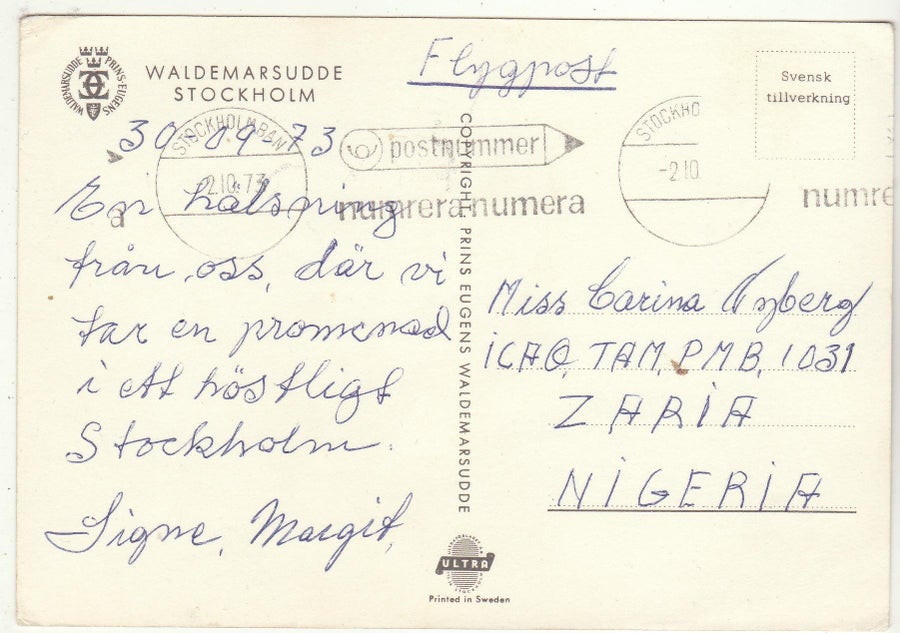 WALDEMARSUDDE PRINS EUGENS
WALDEMARSUDDE
STOCKHOLM
Flygpost
Svensk
tillverkning
30-09-73
STOCKHOLM BAN
2.10.73
postnummer
numrera numera
a
STOCKHO
-2.10
numre
En hälsning
från oss, där vi
tar en promenad
i ett höstligt
Stockholm.
Signe, Margit,
COPYRIGHT, PRINS EUGENS WALDEMARSUDDE
Miss Carina Nyberg
ICAO, TAM, PMB, 1031
ZARIA
NIGERIA
ULTRA
Printed in Sweden